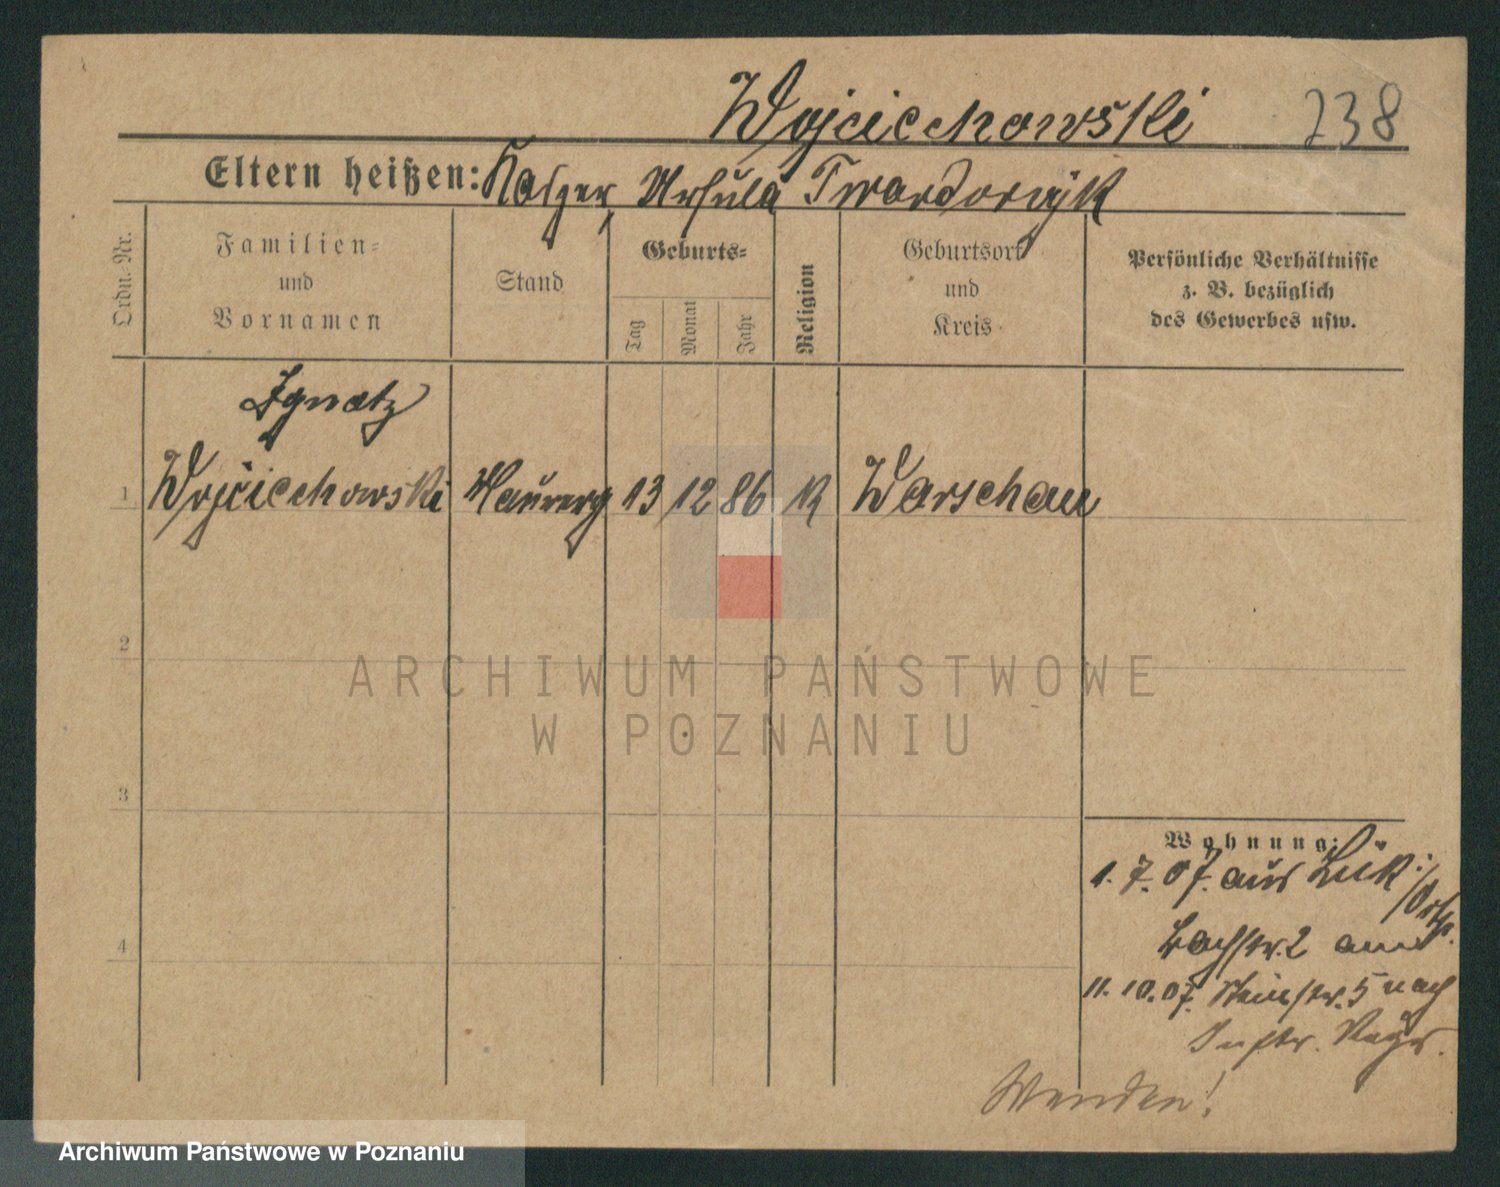 Wojciechowski 238
Eltern heißen: Kasper Ursula Twardowski
Ordn.-Nr.
Familien-
und
Vornamen
Stand
Geburts-
Tag
Monat
Jahr
Religion
Geburtsort
und
Kreis
Persönliche Verhältnisse
z. B. bezüglich
des Gewerbes usw.
Ignatz
1 Wojciechowski Maurerg 13 12 86 K Warschau
2
ARCHIWUM PAŃSTWOWE
W POZNANIU
3
Wohnung:
1. 7. 07. aus
Bachstr. 2
11. 10. 07. Steinstr. 5 nach
4
Wenden!
Archiwum Państwowe w Poznaniu